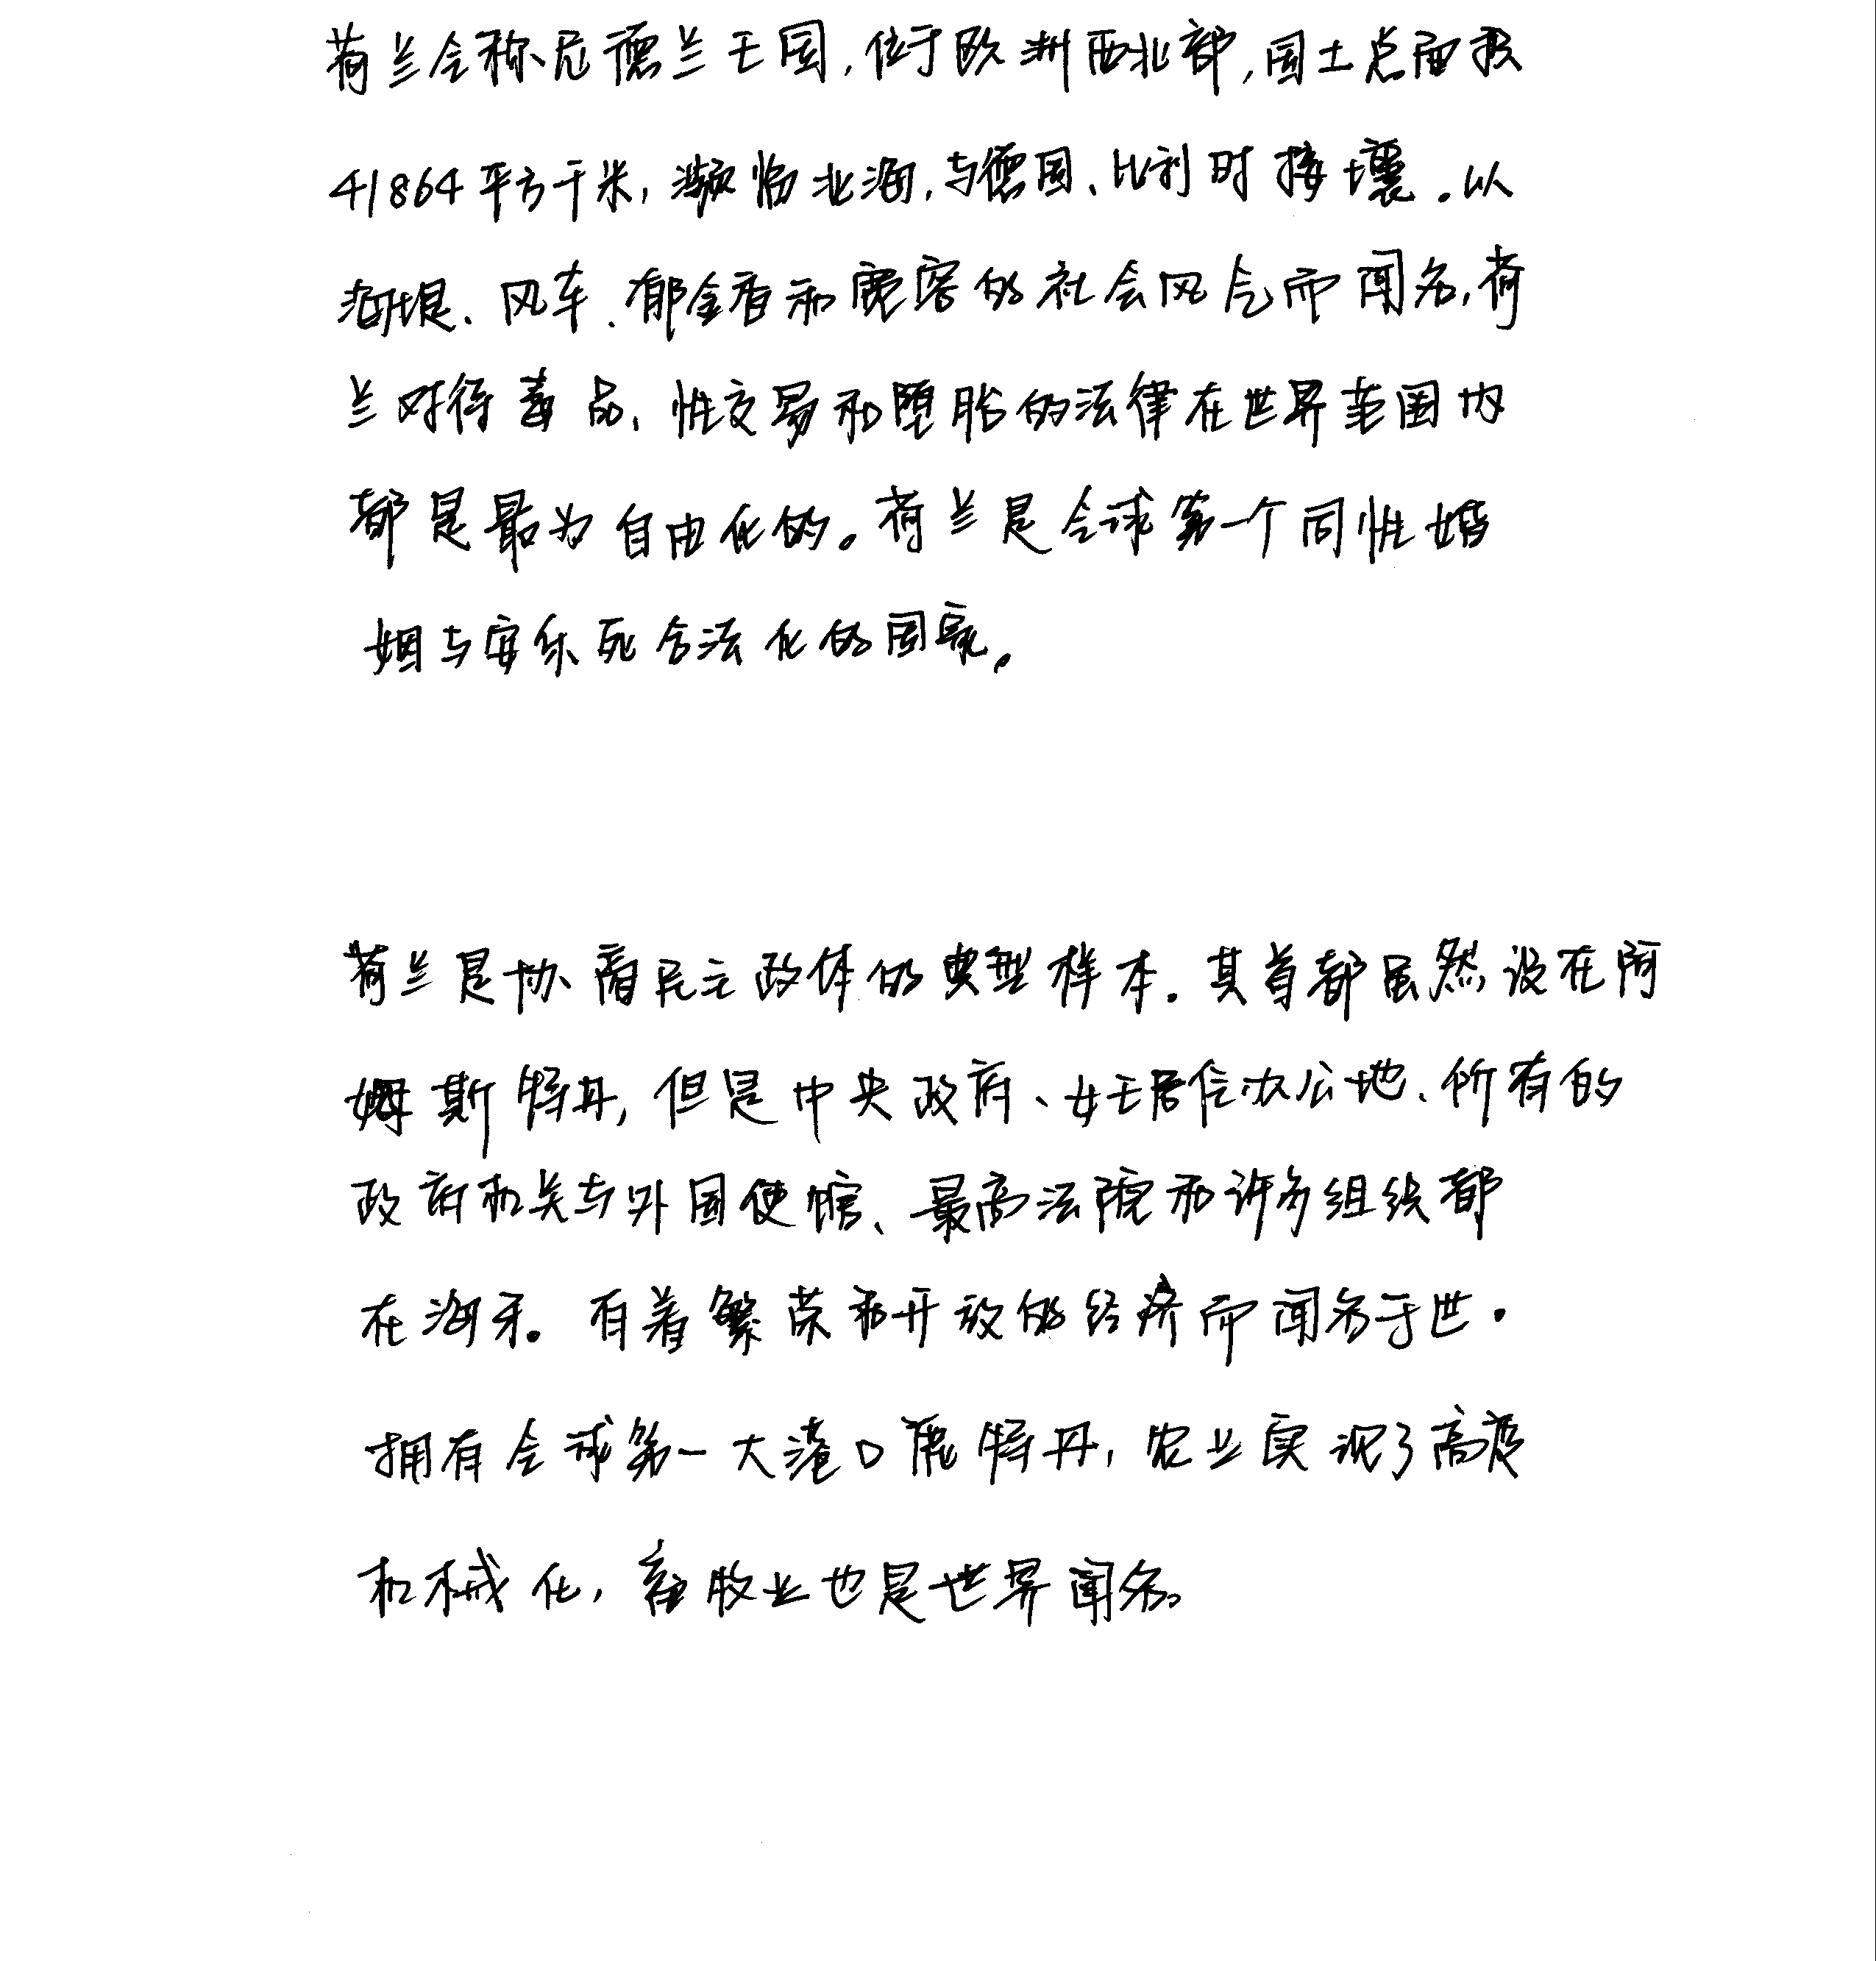 荷兰全称尼德兰王国,位于欧洲西北部,国土总面积
41864平方千米,濒临北海,与德国、比利时接壤.以
海堤、风车、郁金香和宽容的社会风气而闻名,荷
兰对待毒品、性交易和堕胎的法律在世界范围内
都是最为自由化的。荷兰是全球第一个同性婚
姻与安乐死合法化的国家。
荷兰是协商民主政体的典型样本.其首都虽然设在阿
姆斯特丹,但是中央政府、女王居住办公地、所有的
政府机关与外国使馆、最高法院和许多组织都
在海牙。有着繁荣和开放的经济而闻名于世.
拥有全球第一大港口鹿特丹,农业实现了高度
机械化,畜牧业也是世界闻名。